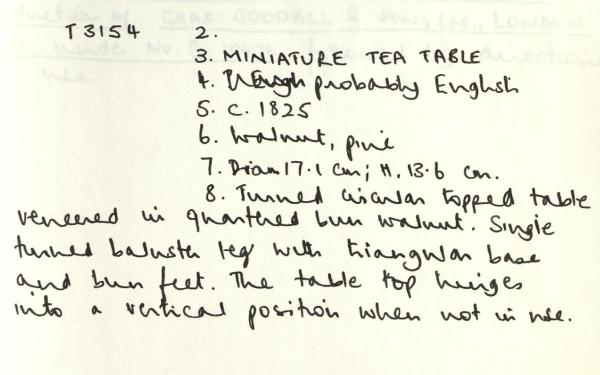 T3154 2.
3. MINIATURE TEA TABLE
4. probably English
5. C. 1825
6. Walnut, pine
7. Diam 17.1 cm; H. 13.6 cm.
8. Turned circular topped table
veneered in quartered burr walnut. Single
turned baluster leg with triangular base
and bun feet. The table top hinges
into a vertical position when not in use.